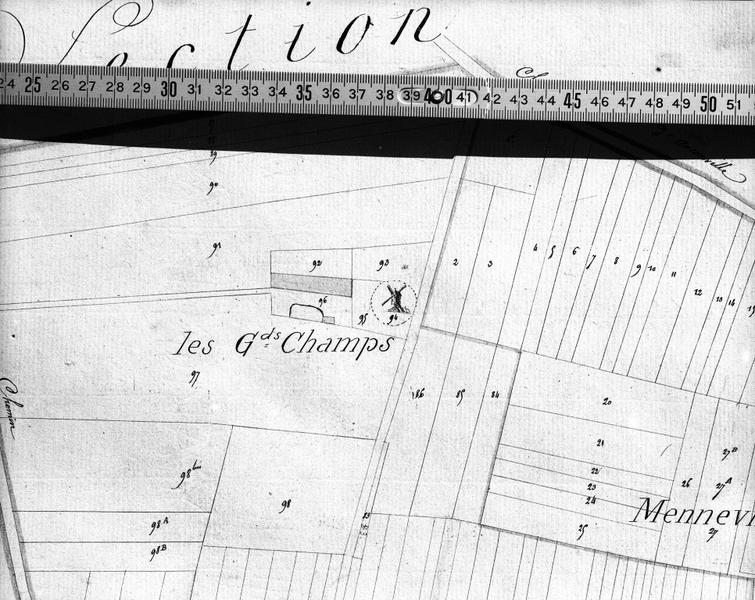 Section
24 25 26 27 28 29 30 31 32 33 34 35 36 37 38 39 40 41 42 43 44 45 46 47 48 49 50 51
89
90
91
92 93
96
95 94
les Gds Champs
97
Chemin
98
98A
98B
2 3 4 5 6 7 8 9 10 11 12 13 14
86 85 84
20
21
22
23
24
25
26
27B
27A
27